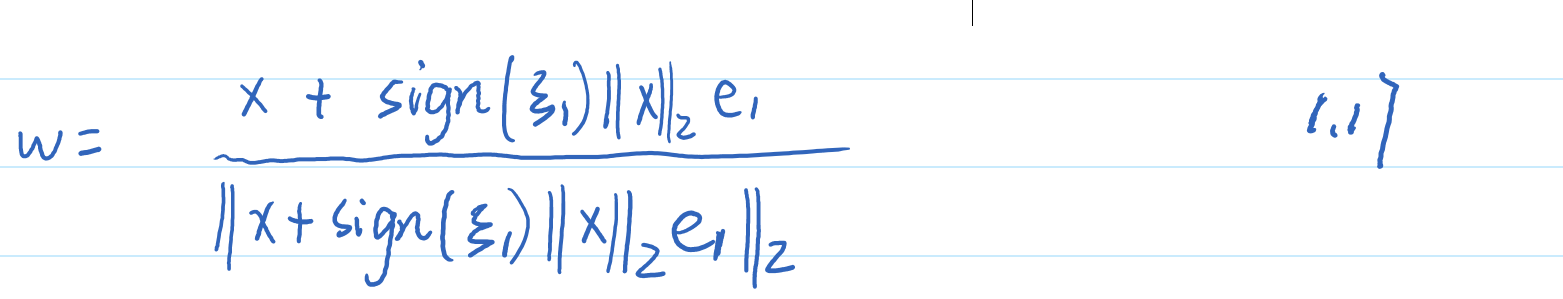 w = \frac{x + sign(ξ_1)‖x‖_2 e_1}{‖x + sign(ξ_1)‖x‖_2 e_1‖_2} 1.1]